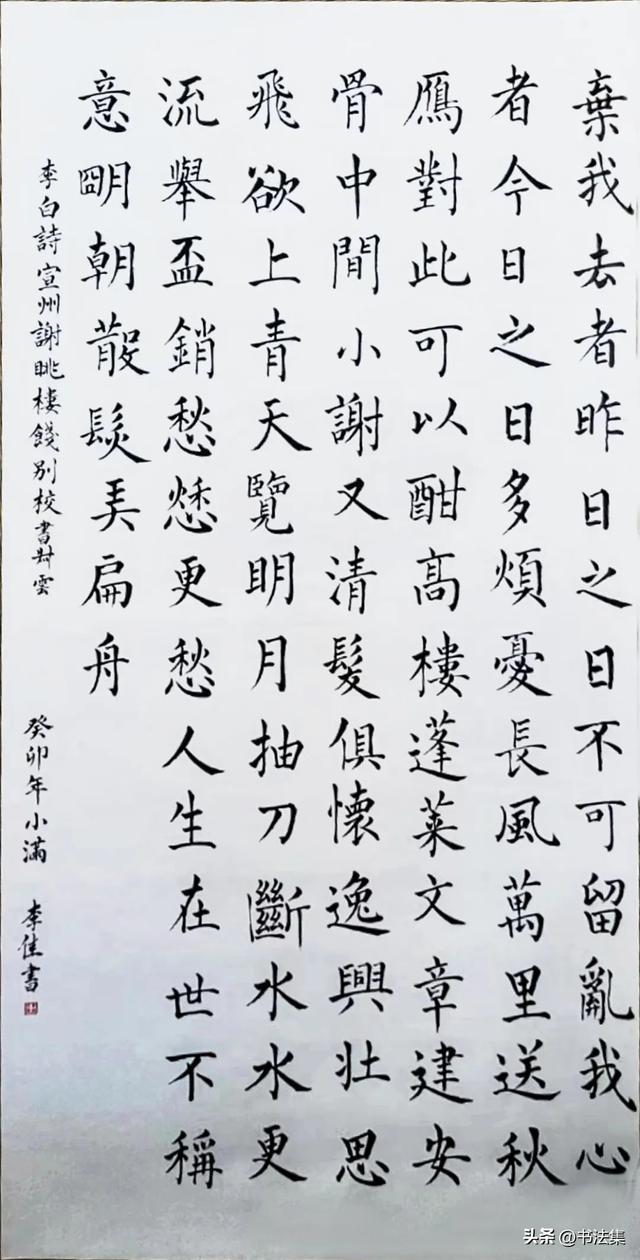 棄我去者昨日之日不可留亂我心
者今日之日多煩憂長風萬里送秋
鴈對此可以酣高樓蓬萊文章建安
骨中間小謝又清髮俱懷逸興壯思
飛欲上青天覽明月抽刀斷水水更
流舉盃銷愁愁更愁人生在世不稱
意朙朝散髮弄扁舟
李白詩宣州謝眺樓餞別校書叔雲
癸卯年小滿 李佳書
头条 @书法集